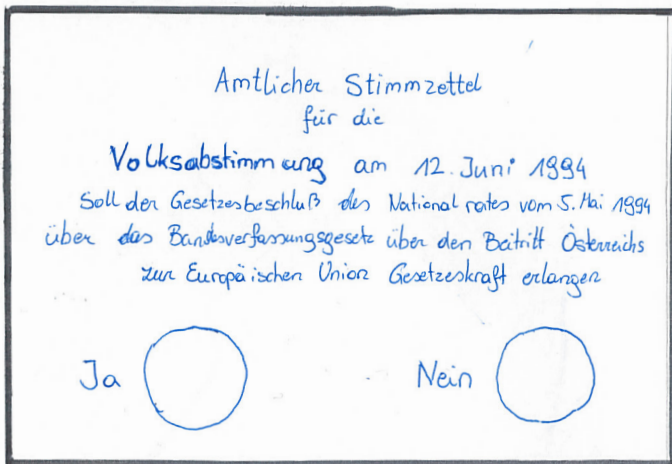 Amtlicher Stimmzettel
für die
Volksabstimmung am 12. Juni 1994
Soll der Gesetzesbeschluß des Nationalrates vom 5. Mai 1994
über das Bundesverfassungsgesetz über den Beitritt Österreichs
zur Europäischen Union Gesetzeskraft erlangen
Ja Nein